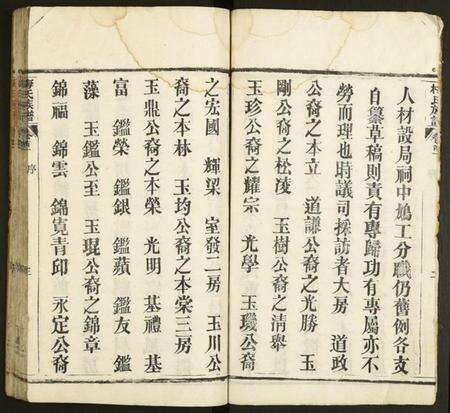 人材設局祠中鳩工分職仍舊例各支
自纂草稿則責有專歸功有專屬亦不
勞而理也時議司採訪者大房 道政
公裔之本立 道謙公裔之光勝 玉
剛公裔之松凌 玉樹公裔之清舉
玉珍公裔之耀宗 光學 玉璣公裔
之宏國 輝梁 室發二房 玉川公
裔之本林 玉均公裔之本棠三房
玉鼎公裔之本榮 光明 基禮 基
富 鑑榮 鑑銀 鑑蘋 鑑友 鑑
藻 玉鑑公至 玉琨公裔之錦章
錦福 錦雲 錦寬青印 永定公裔
氏族譜
序